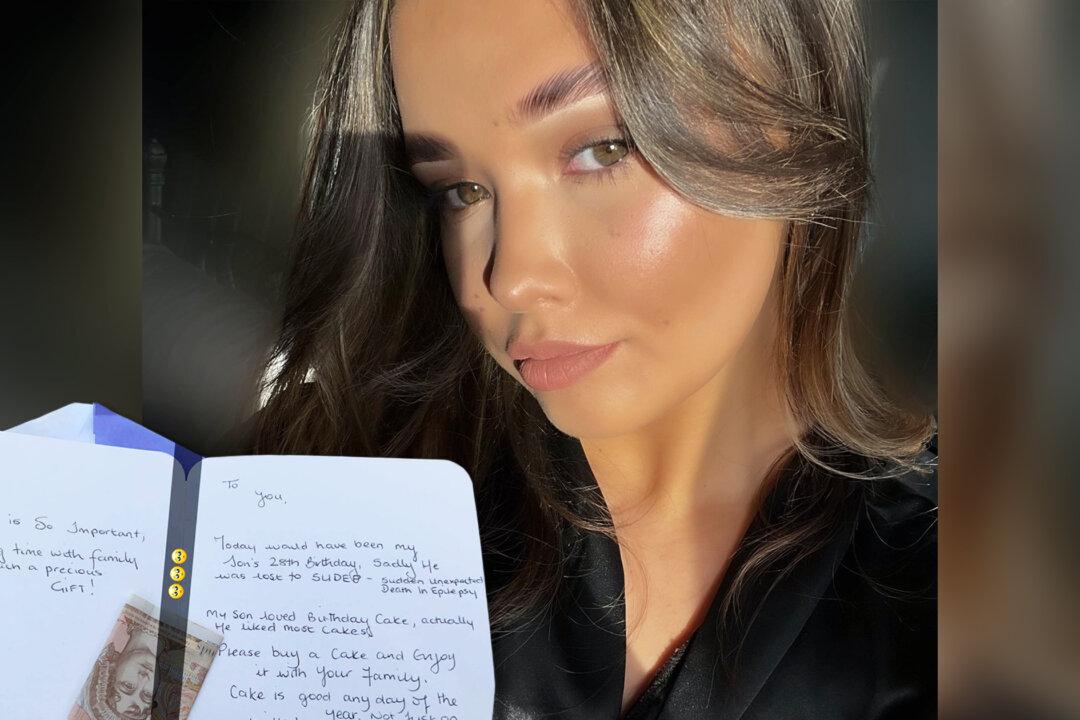 is So Important,
time with family
a precious
GIFT!
To
you.
Today would have been my
Son's 28th Birthday, Sadly He
was lost to SUDEP - Sudden Unexpected
Death In Epilepsy
My Son loved Birthday Cake, actually
He liked most Cakes
Please buy a Cake and Enjoy
it with Your Family.
Cake is good any day of the
year. Not Just on